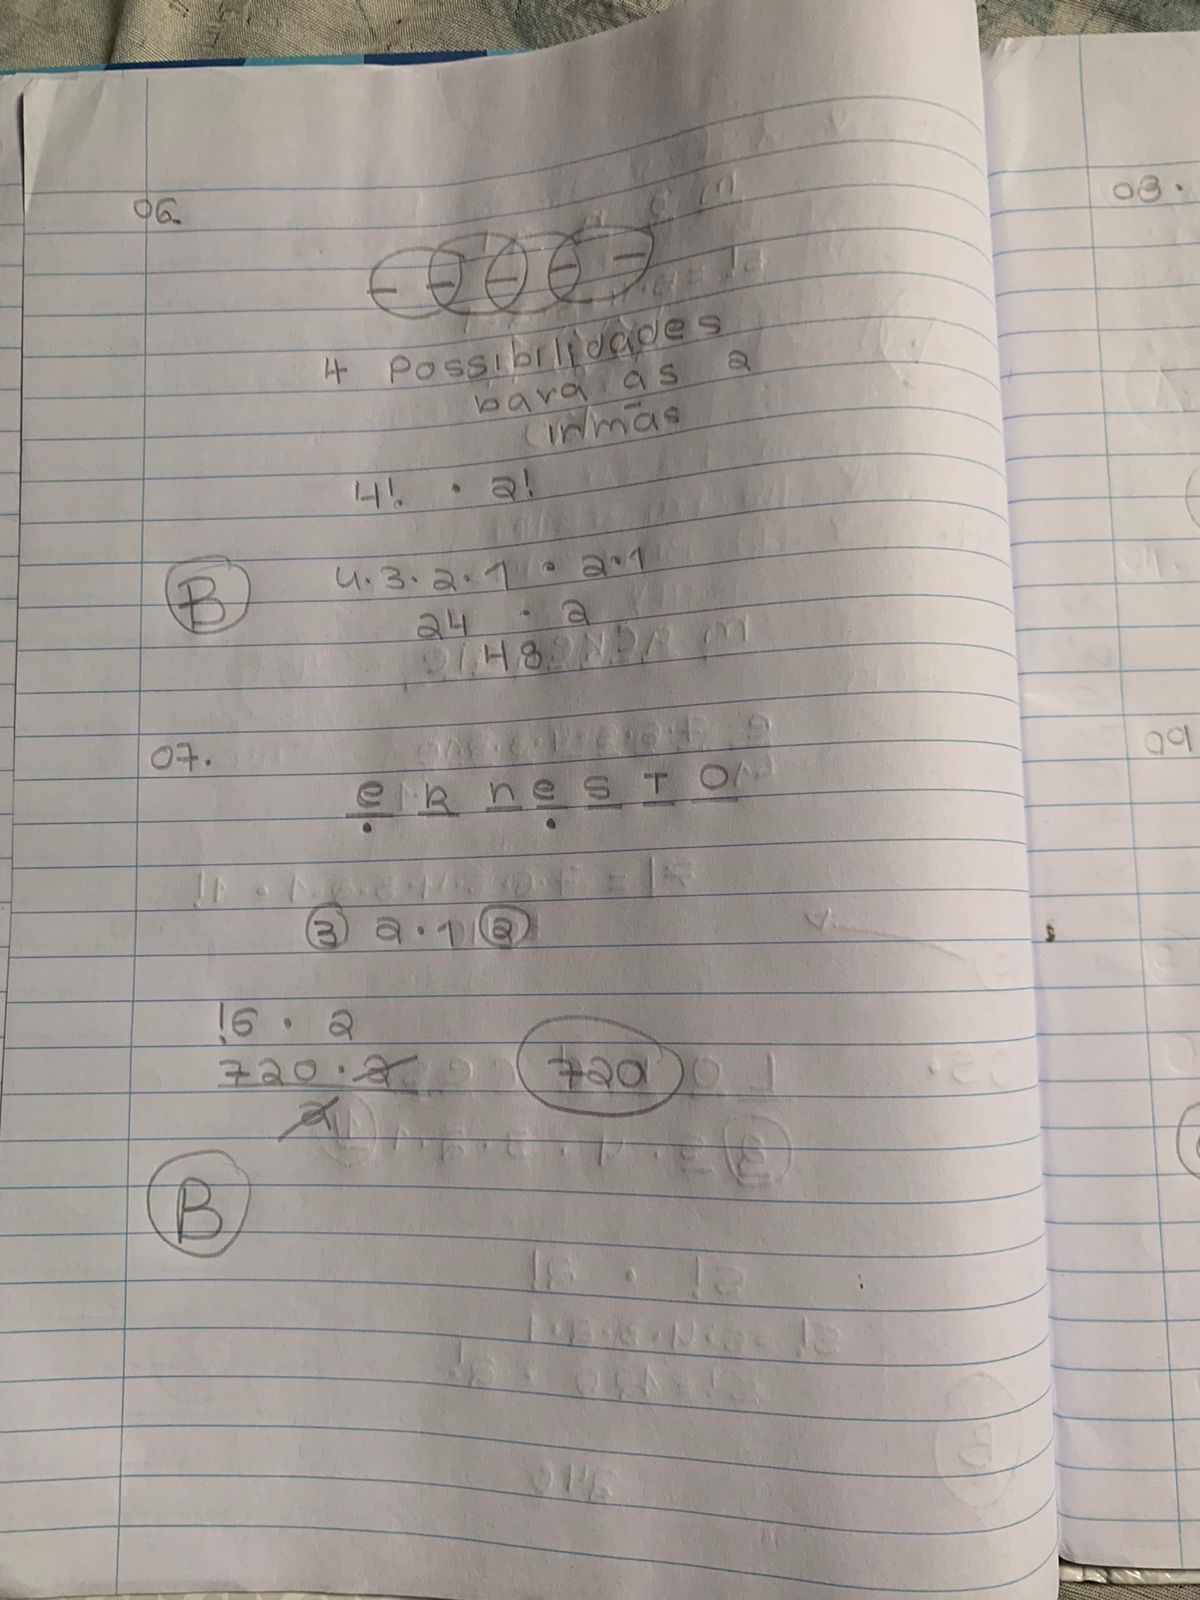 06.
4 possibilidades
para as 2
irmãs
4! · 2!
B
4·3·2·1 · 2·1
24 · 2
48
07.
e R n e s T O
3 2·1 2
!6 · 2
720·2
2
720
B
08.
09